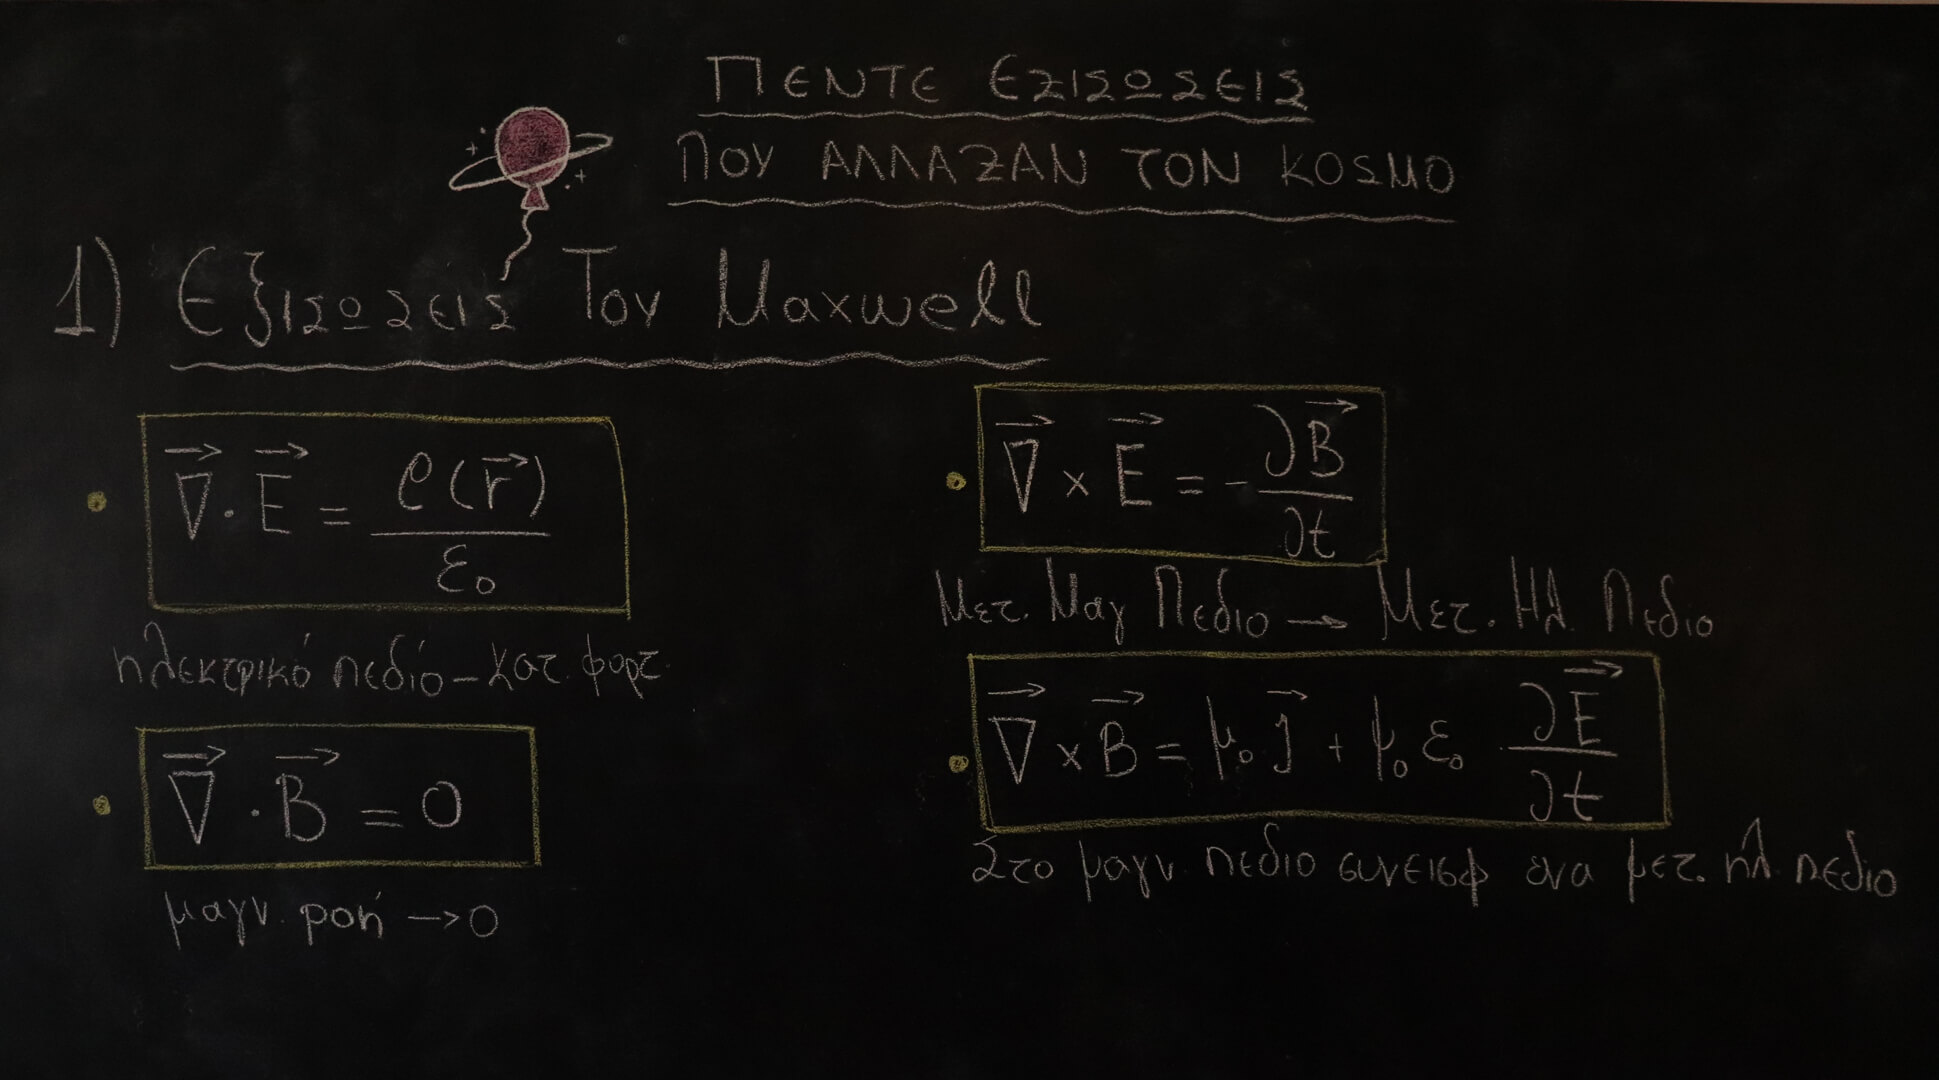 ΠΕΝΤΕ ΕΞΙΣΩΣΕΙΣ
ΠΟΥ ΑΛΛΑΞΑΝ ΤΟΝ ΚΟΣΜΟ
1) Εξισώσεις Του Maxwell
∇⃗ · E⃗ = ρ(r⃗) / ε₀
ηλεκτρικό πεδίο – κατ. φορτ.
∇⃗ · B⃗ = 0
μαγν. ροή → 0
∇⃗ × E⃗ = - ∂B⃗ / ∂t
Μετ. Μαγ Πεδιο → Μετ. Ηλ. Πεδιο
∇⃗ × B⃗ = μ₀ J⃗ + μ₀ ε₀ ∂E⃗ / ∂t
Στο μαγν. πεδιο συνεισφ ενα μετ. ηλ. πεδιο